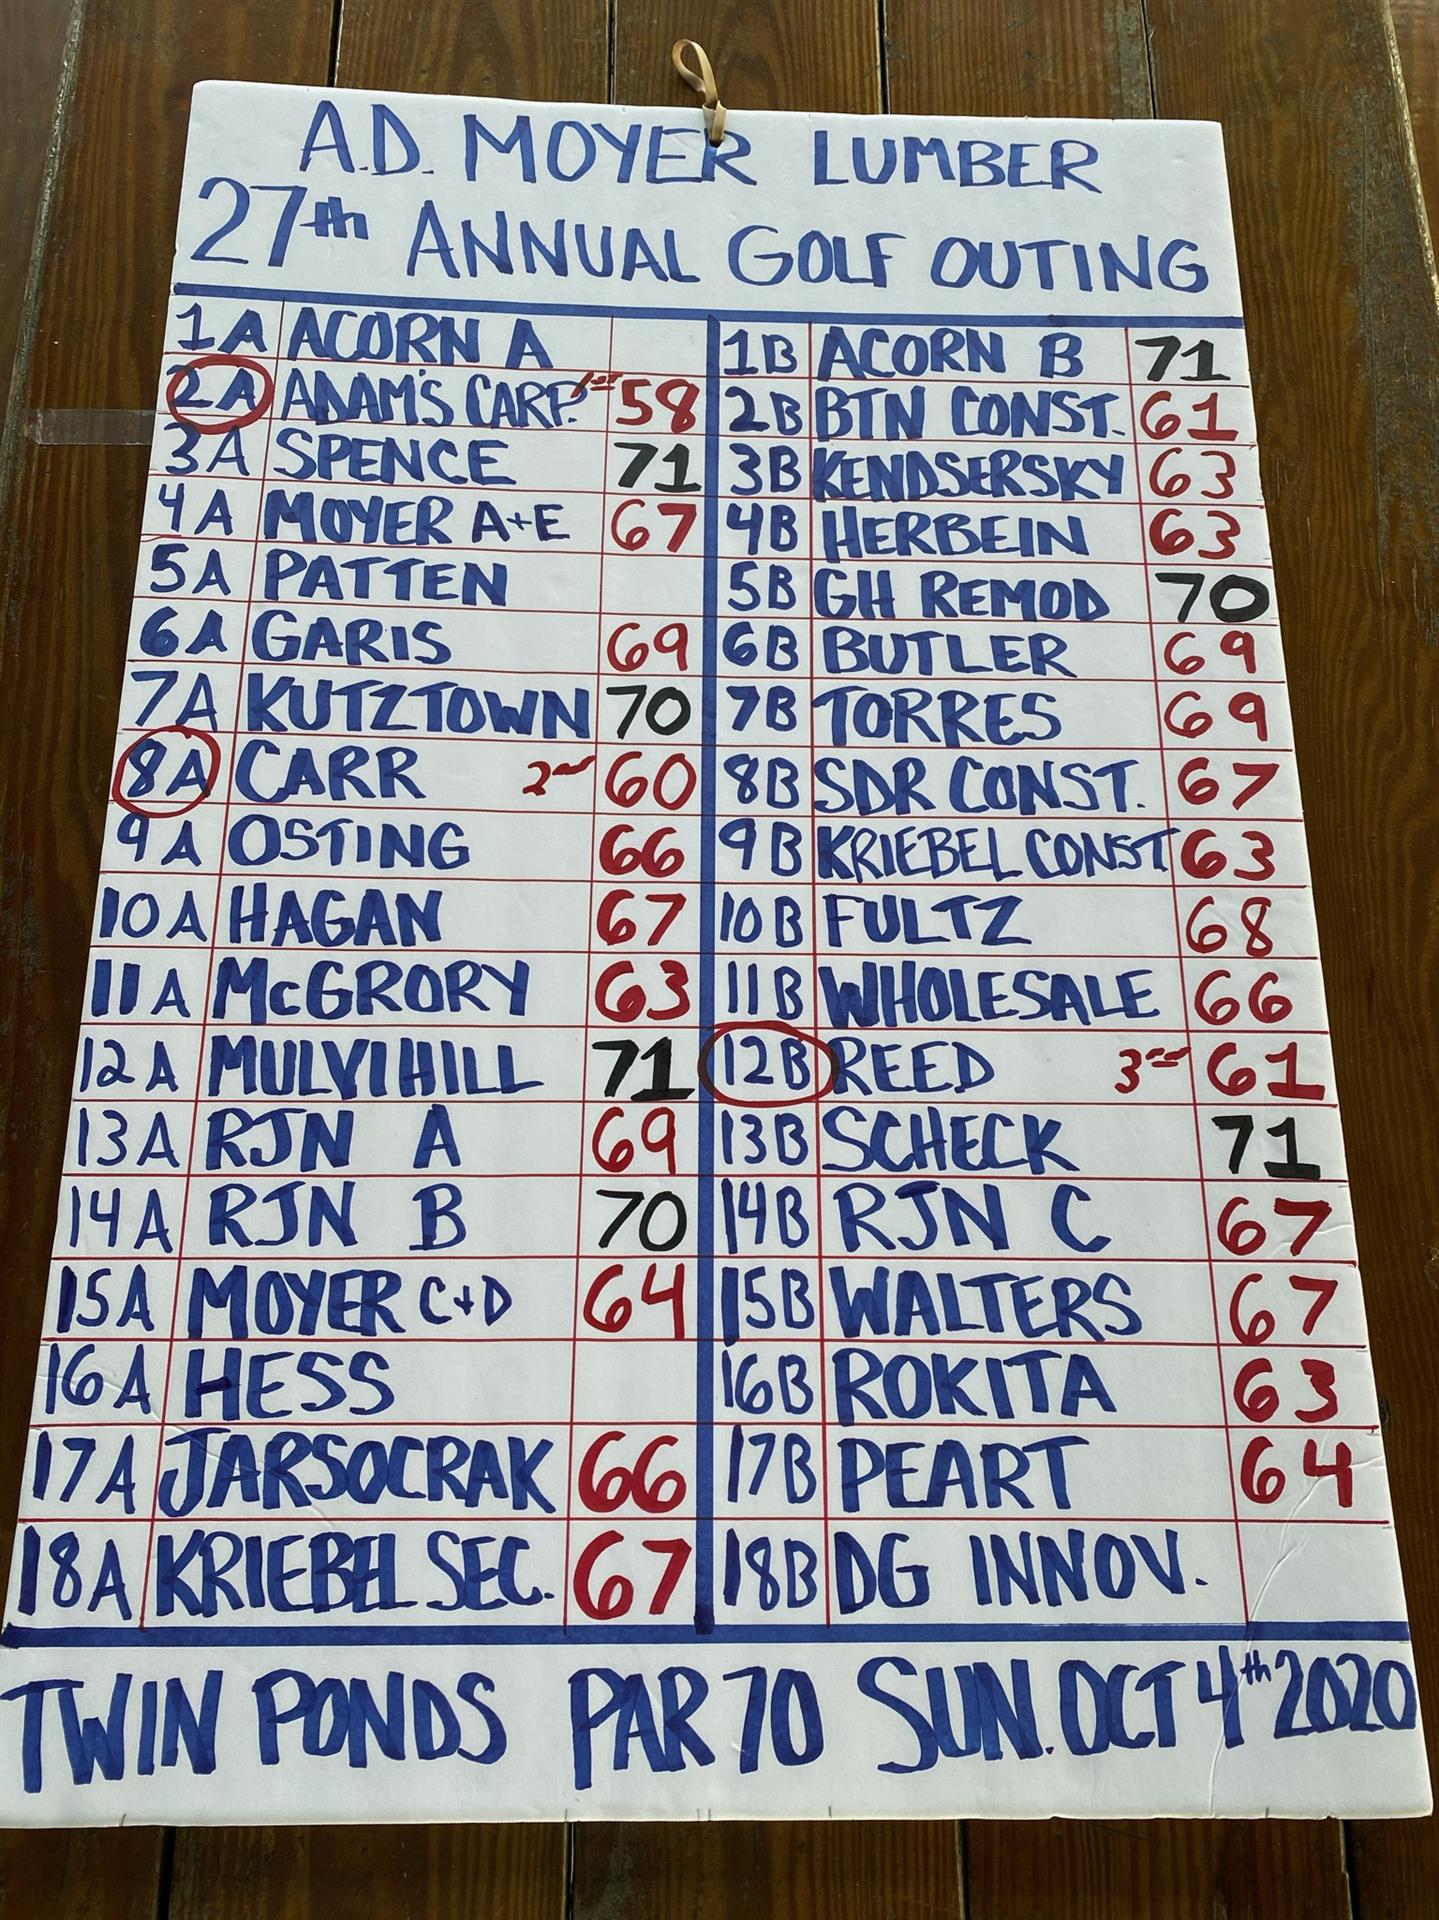 A.D. MOYER LUMBER
27th ANNUAL GOLF OUTING
1A ACORN A 1B ACORN B 71
2A ADAM'S CARP. 1st 58 2B BTN CONST. 61
3A SPENCE 71 3B KENDSERSKY 63
4A MOYER A+E 67 4B HERBEIN 63
5A PATTEN 5B GH REMOD 70
6A GARIS 69 6B BUTLER 69
7A KUTZTOWN 70 7B TORRES 69
8A CARR 2nd 60 8B SDR CONST. 67
9A OSTING 66 9B KRIEBEL CONST 63
10A HAGAN 67 10B FULTZ 68
11A McGRORY 63 11B WHOLESALE 66
12A MULVIHILL 71 12B REED 3rd 61
13A RJN A 69 13B SCHECK 71
14A RJN B 70 14B RJN C 67
15A MOYER C+D 64 15B WALTERS 67
16A HESS 16B ROKITA 63
17A JARSOCRAK 66 17B PEART 64
18A KRIEBEL SEC. 67 18B DG INNOV.
TWIN PONDS PAR 70 SUN. OCT 4th 2020